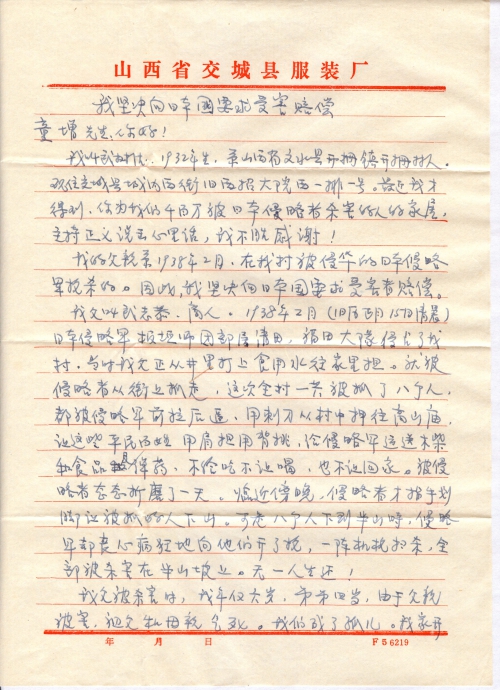 山西省交城县服装厂
我坚决向日本国要求受害赔偿
童增先生，你好！
我叫武 1932年生，系山西省文水县开栅镇开栅村人。
现住交城县城内西街旧西招大院西一排一号。最近我才
得到，你为我们千百万被日本侵略者杀害的人的家属，
主持正义说出心里话，我不胜感谢！
我的父亲系1938年2月，在我村被侵华的日本侵略
军枪杀的。因此，我坚决向日本国要求受害者赔偿。
我父叫武 商人。1938年2月（旧历正月15日清晨）
日本侵略军板垣师团部属清田，稻田大队侵占了我
村，当时我父正从井里打上食用水往家里担。就被
侵略者从街上抓走，这次全村一共被抓了八个人，
都被侵略军前拉后逼，用刺刀从村中押往高山庙，
让这些平民百姓用肩担用背挑，给侵略军运送木柴
和食品 弹药，不给吃不让喝，也不让回家。被侵
略者李 折磨了一天。临近傍晚，侵略者才指手划
脚让被抓的人下山。可是八个人下到半山时，侵略
军却丧心病狂地向他们开了枪，一阵机枪扫杀，全
部被杀害在半山坡上。无一人生还！
我父被杀害时，我年仅六岁，弟弟四岁，由于父亲
被害，祖父和母亲 我们成了孤儿。我家
年 月 日 F56219